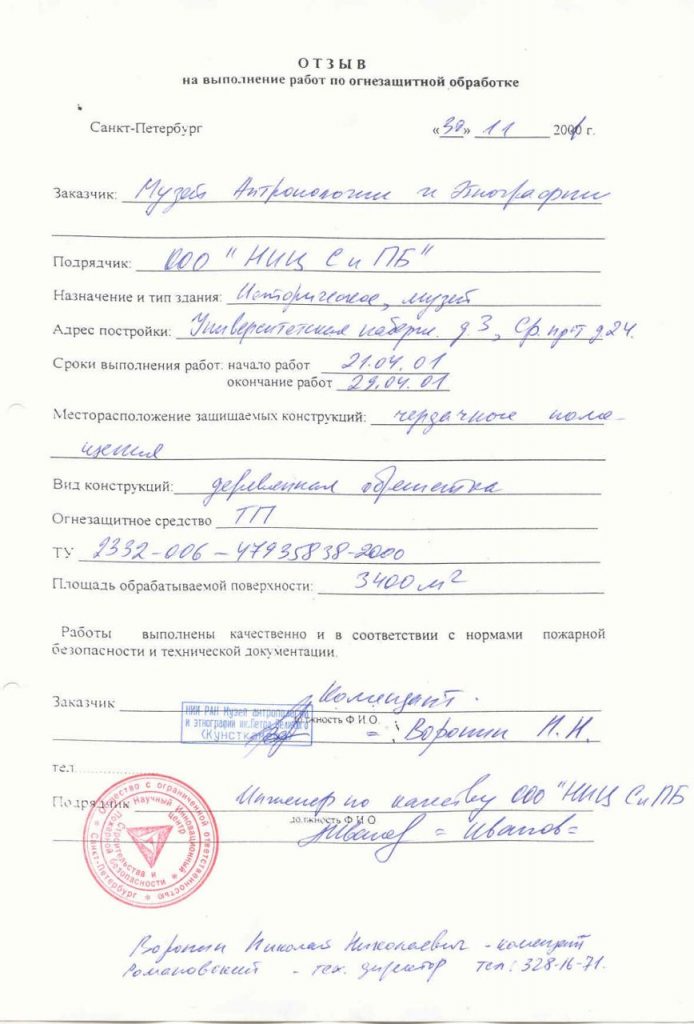 ОТЗЫВ
на выполнение работ по огнезащитной обработке
Санкт-Петербург «30» 11 2001 г.
Заказчик: Музей Антропологии и Этнографии
Подрядчик: ООО "НИЦ С и ПБ"
Назначение и тип здания: Историческое, музей
Адрес постройки: Университетская набереж. д.3, Ср. пр-т д.24.
Сроки выполнения работ: начало работ 21.04.01
окончание работ 29.04.01
Месторасположение защищаемых конструкций: чердачное поме-
щения
Вид конструкций: деревянная обрешетка
Огнезащитное средство ТП
ТУ 2332-006-47935838-2000
Площадь обрабатываемой поверхности: 3400 м²
Работы выполнены качественно и в соответствии с нормами пожарной
безопасности и технической документации.
Заказчик Комендант.
НИИ РАН Музей антропологии
должность Ф.И.О.
и этнографии им.Петра Великого
(Кунсткамера)
Воронин Н.Н.
тел..............
Подрядчик Инженер по качеству ООО "НИЦ С и ПБ
должность Ф.И.О
Иванов = Иванов =
Общество с ограниченной ответственностью
Санкт-Петербург
Научный Инновационный центр
Строительства и
Пожарной безопасности
Воронин Николай Николаевич - комендант
Романовский - тех. директор тел: 328-16-71.